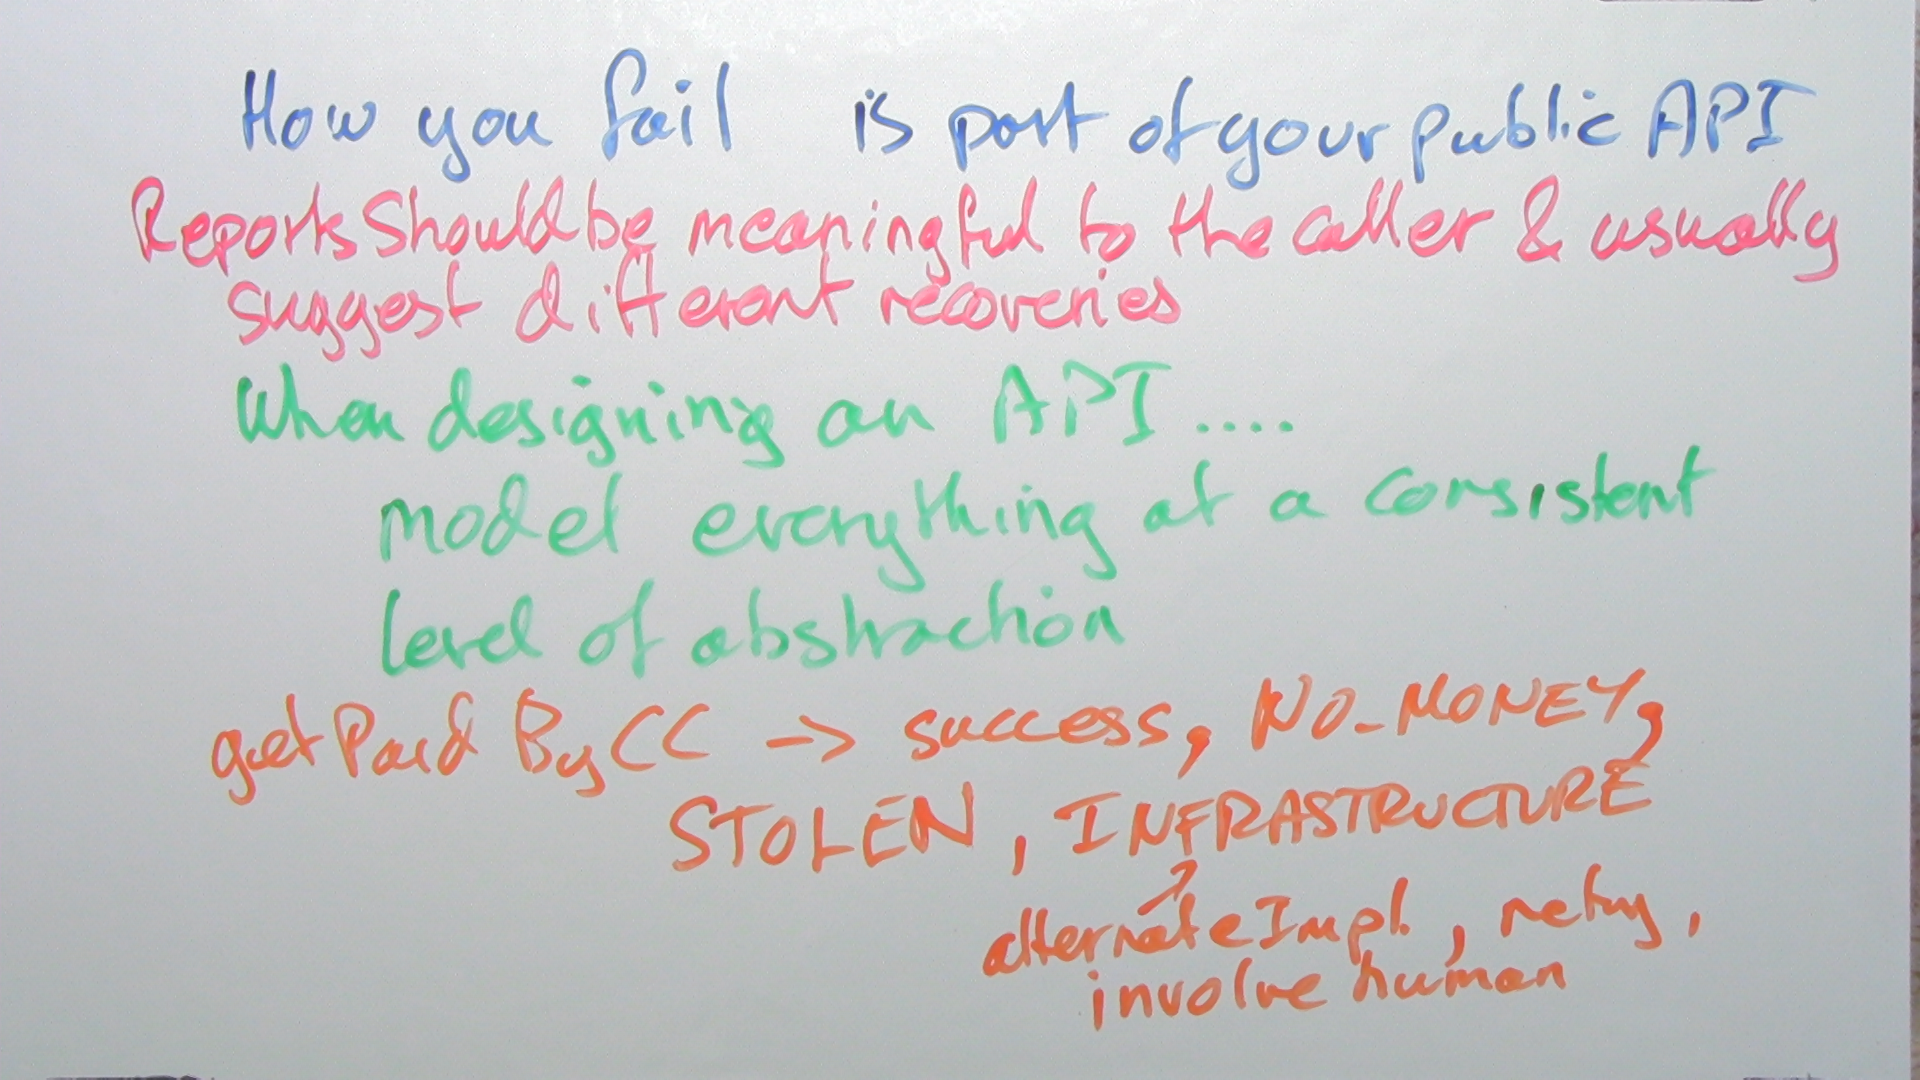 How you fail is part of your public API
Reports Should be meaningful to the caller & usually
suggest different recoveries
When designing an API ....
model everything at a consistent
level of abstraction
getPaid By CC -> success, NO_MONEY,
STOLEN, INFRASTRUCTURE
alternateImpl., retry,
involve human